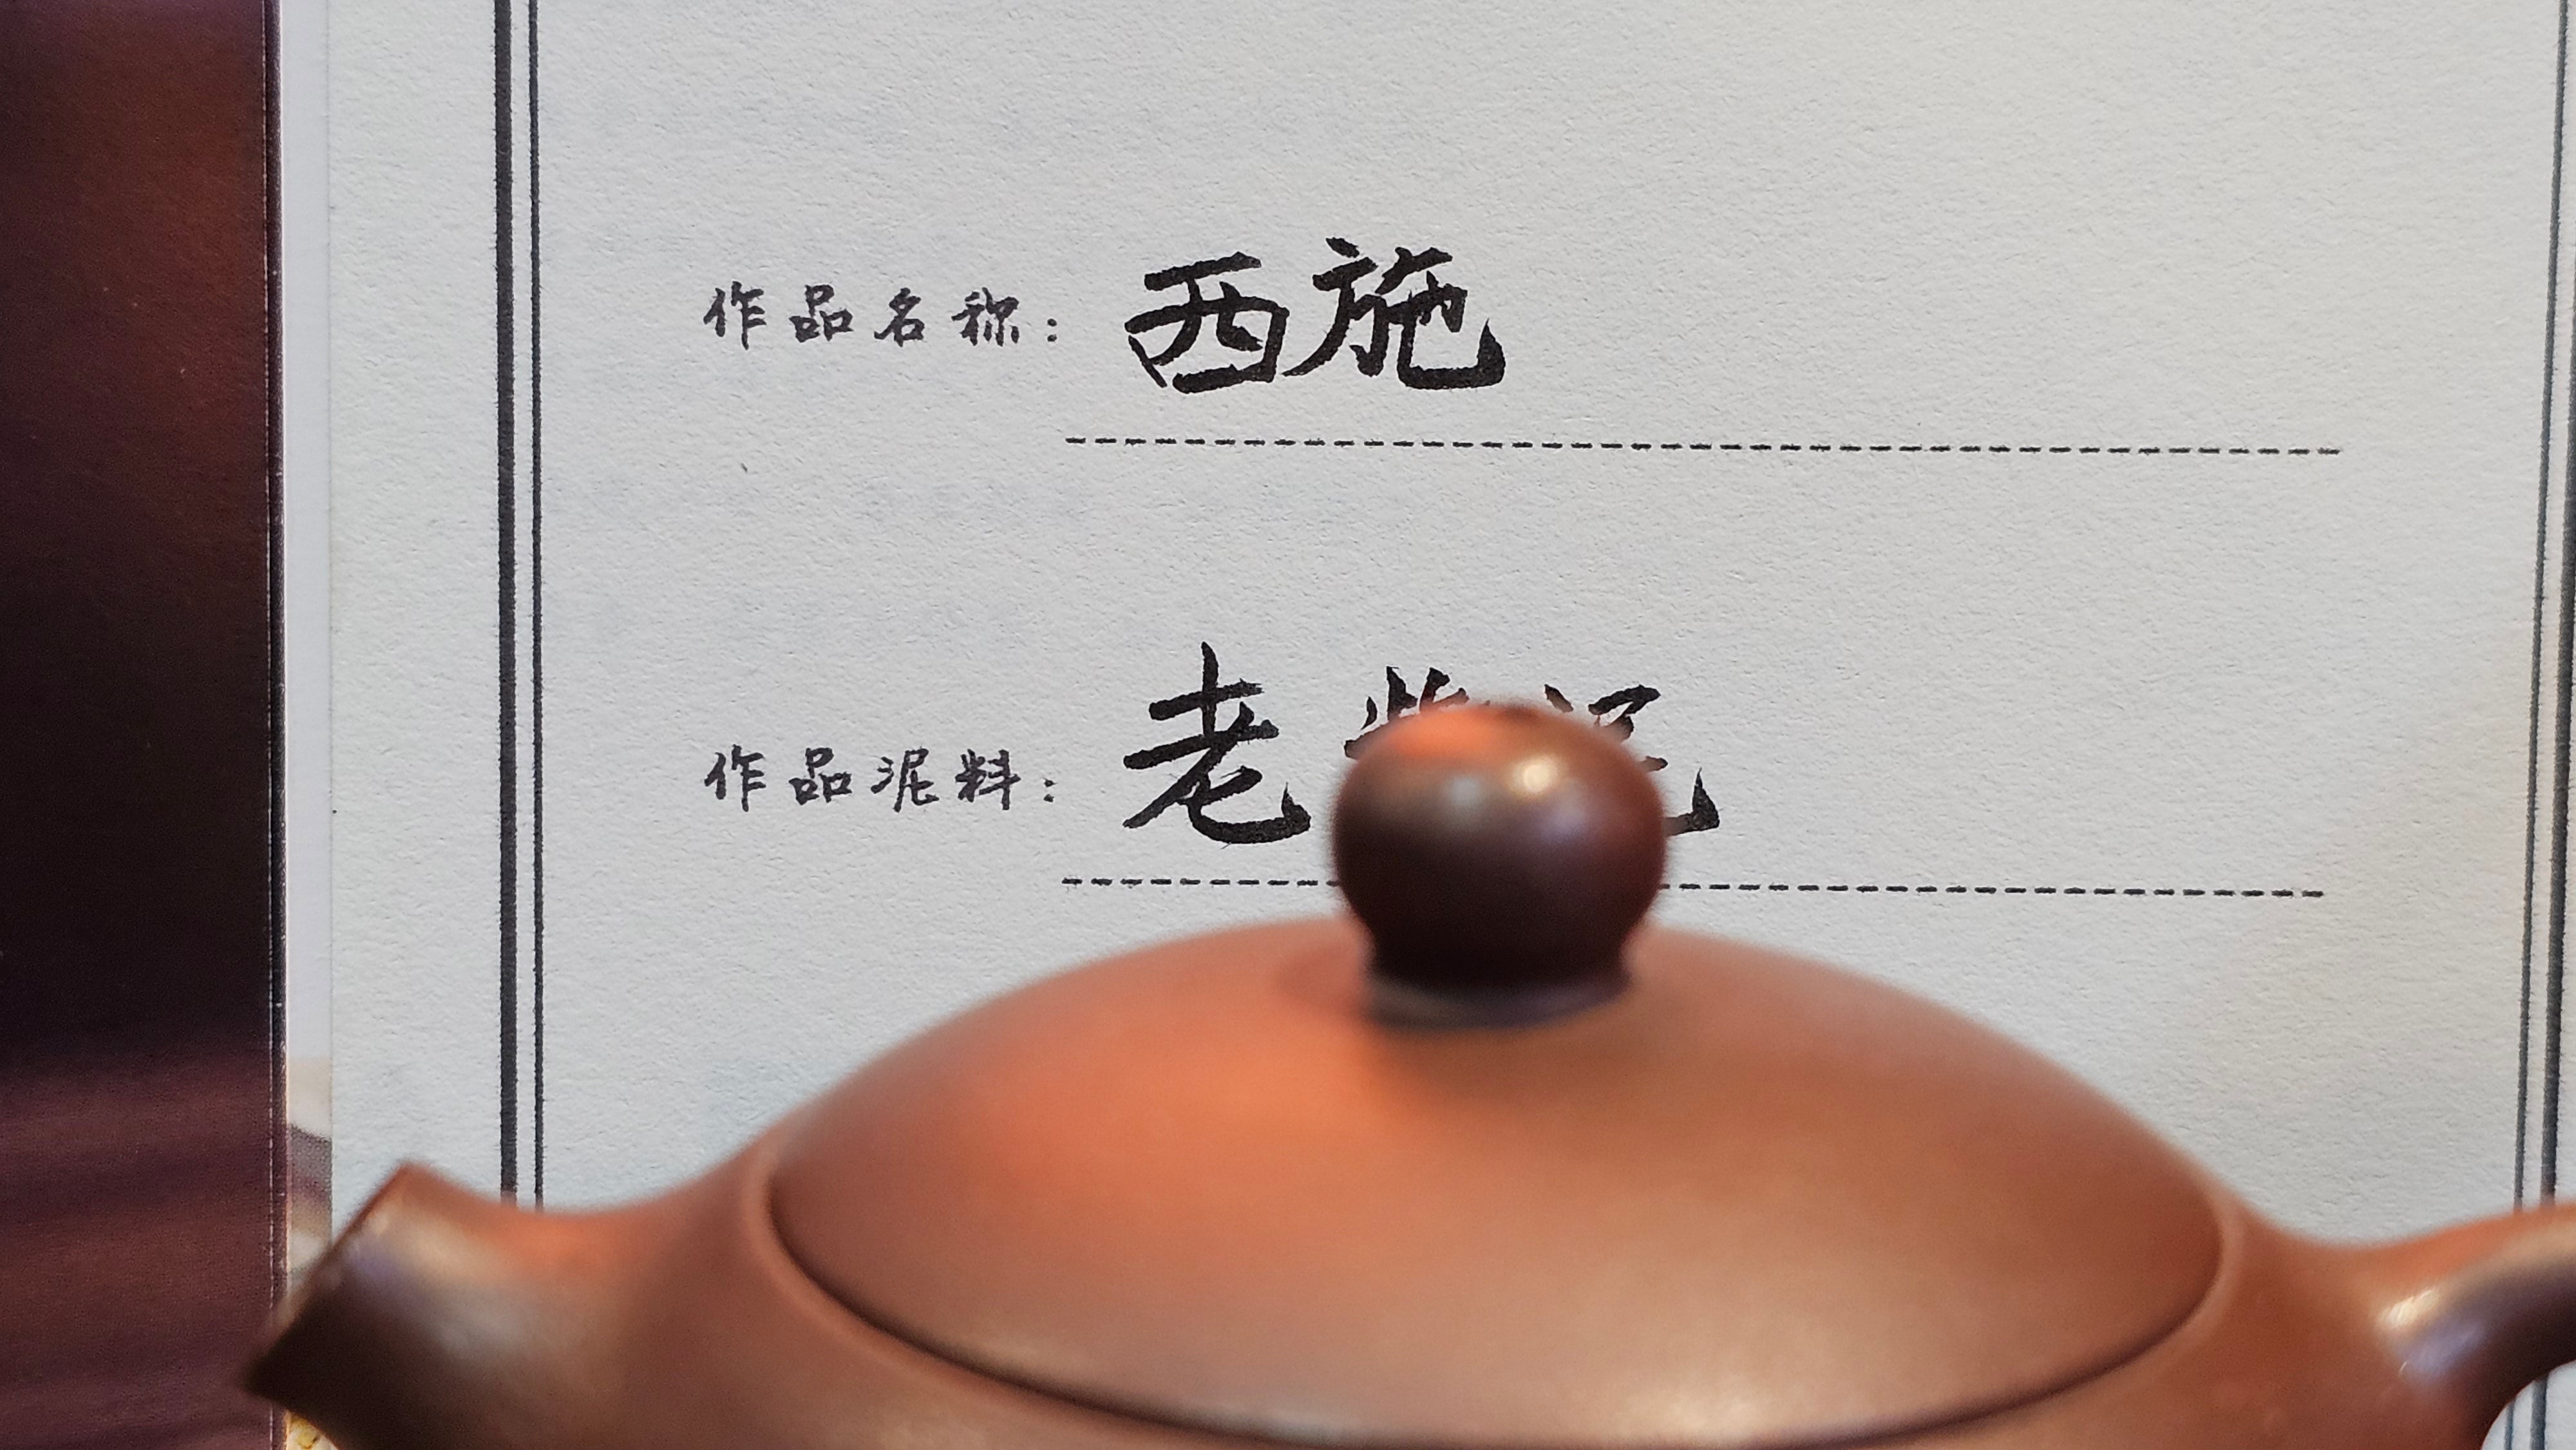 作品名称：西施
作品泥料：老紫泥